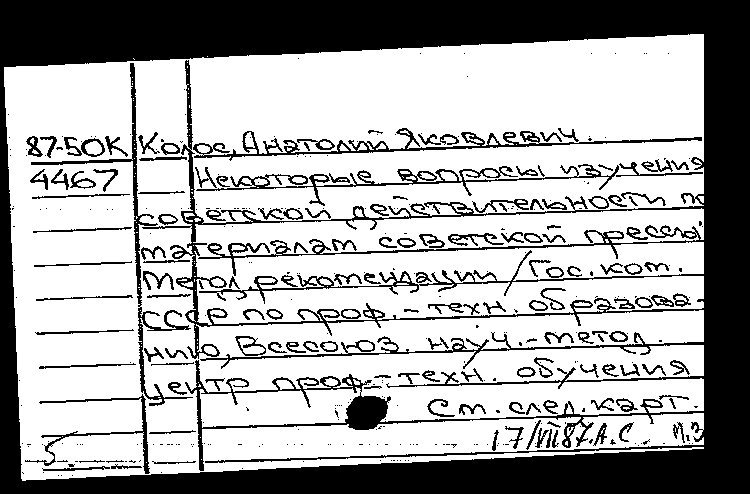 87-50К Колос, Анатолий Яковлевич.
4467 Некоторые вопросы изучения
советской действительности по
материалам советской прессы:
Метод. рекомендации / Гос. ком.
СССР по проф.-техн. образова-
нию, Всесоюз. науч.-метод.
центр проф.-техн. обучения
См. след. карт.
17/VII87. А.С. М.З
5.